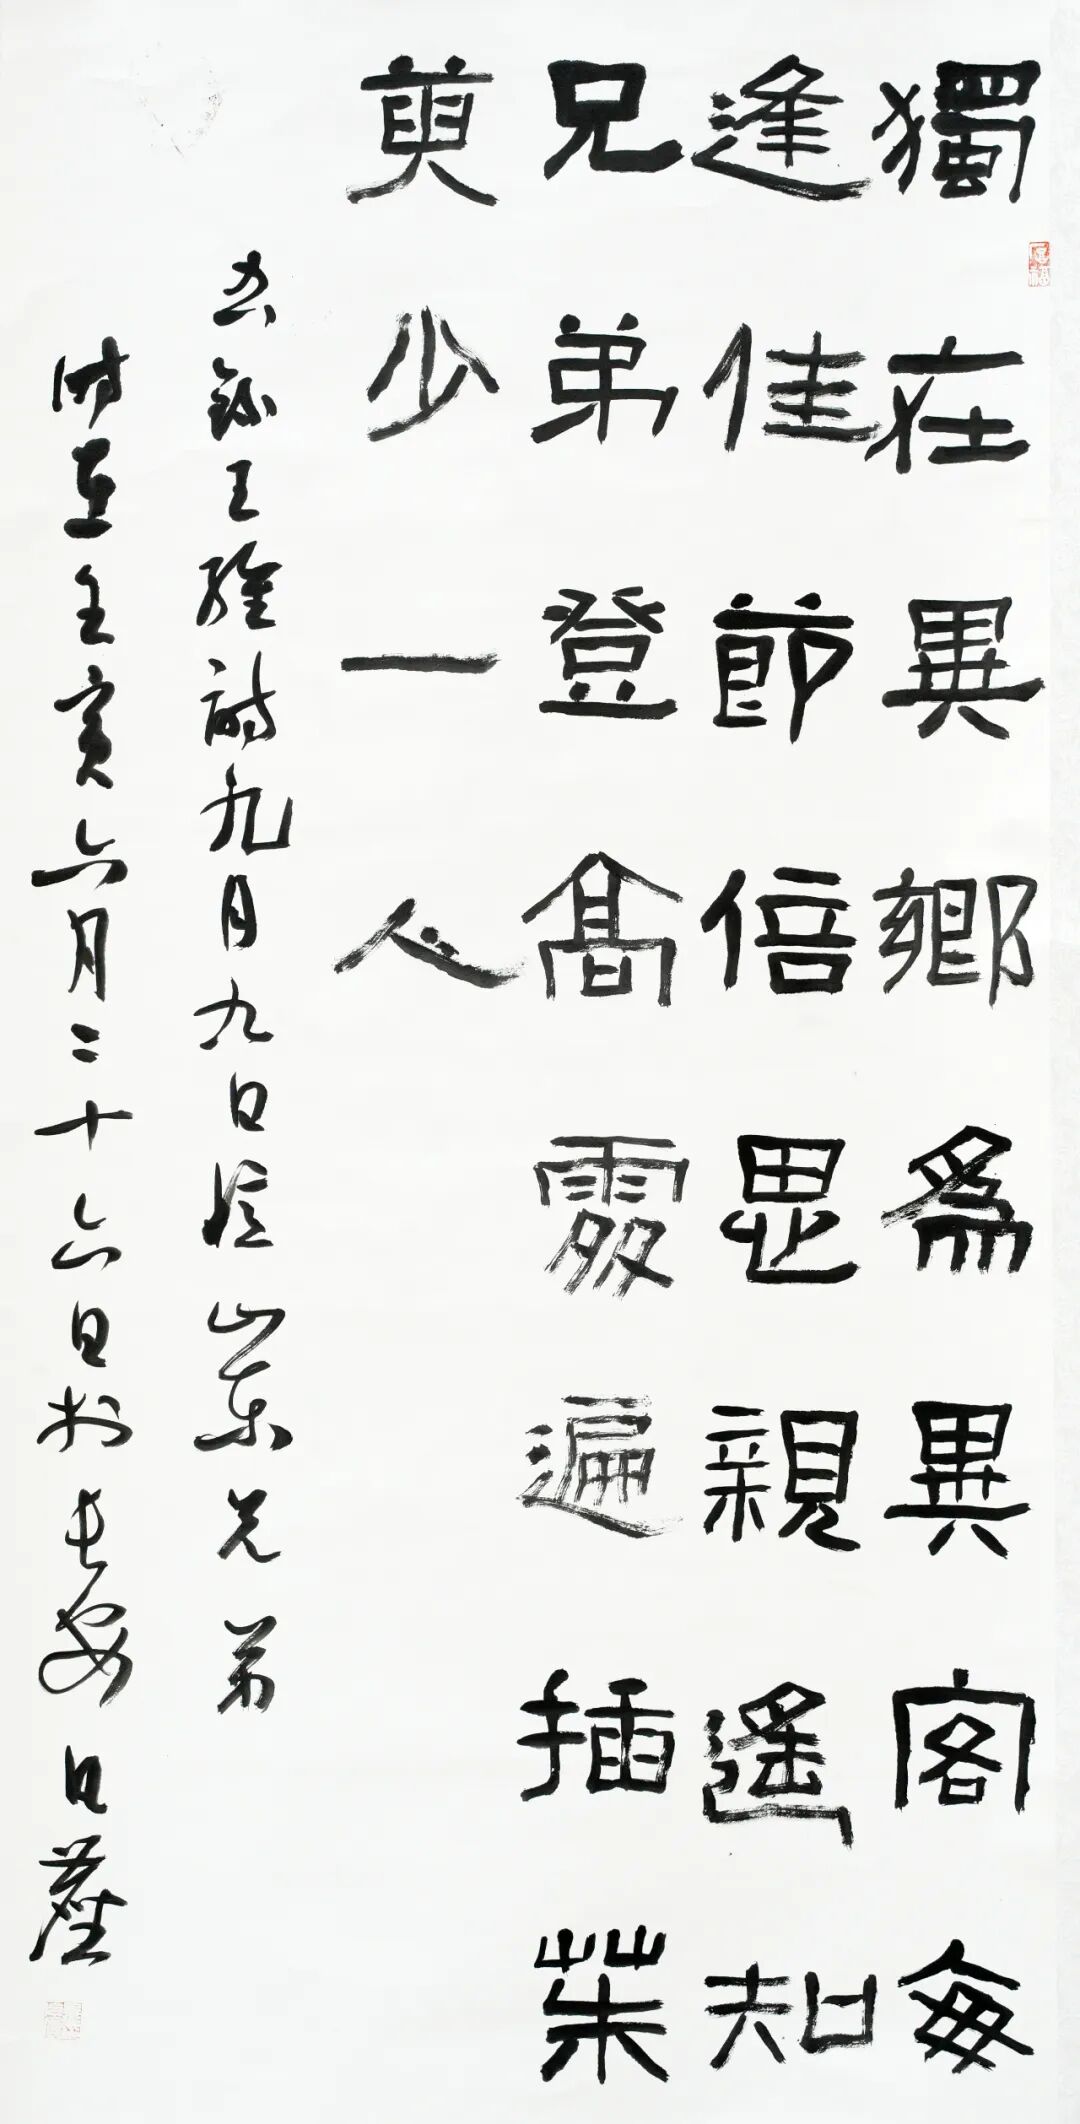 獨在異鄉爲異客每
逢佳節倍思親遙知
兄弟登高處遍插茱
萸少一人
右錄王維詩九月九日憶山東兄弟
時在壬寅六月二十六日於長安